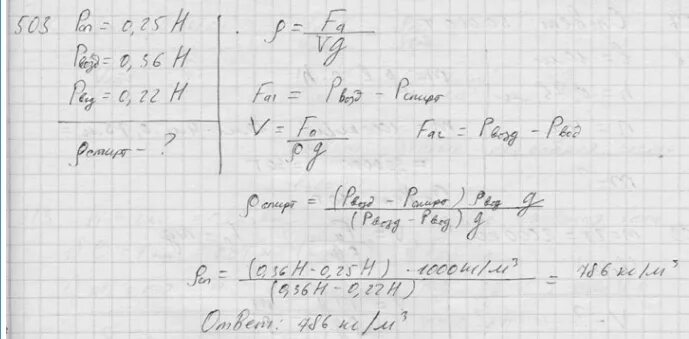 503 Pсп = 0,25 Н
Pвозд = 0,36 Н
Pвод = 0,22 Н
ρспирт - ?
ρ = Fa / Vg
Fa1 = Pвозд - Pспирт
V = Fa / ρ g Fa2 = Pвозд - Pвод
ρспирт = (Pвозд - Pспирт) ρвод g / (Pвозд - Pвод) g
ρсп = (0,36 Н - 0,25 Н) · 1000 кг/м³ / (0,36 Н - 0,22 Н) = 786 кг/м³
Ответ: 786 кг/м³